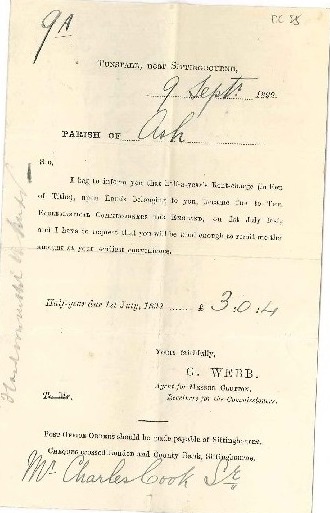 9A
DC 58
TUNSTALL, near SITTINGBOURNE,
9 Septr
PARISH OF Ash
SIR,
I beg to inform you that half-a-year's Rent-charge (in lieu
of Tithe), upon Lands belonging to you, became due to THE
ECCLESIASTICAL COMMISSIONERS FOR ENGLAND, on 1st July last,
and I have to request that you will be kind enough to remit me the
amount at your earliest convenience.
Half-year due 1st July, £ 3.0.4
Yours faithfully,
G. WEBB.
Agent for MESSRS CLUTTON,
Receivers for the Commissioners.
POST OFFICE ORDERS should be made payable at Sittingbourne.
CHEQUES crossed London and County Bank, Sittingbourne.
Mr. Charles Cook Sr